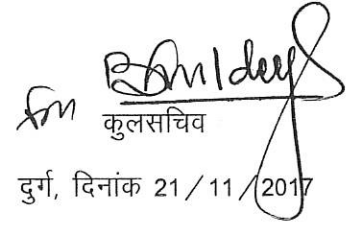 for
कुलसचिव
दुर्ग, दिनांक 21/11/2017